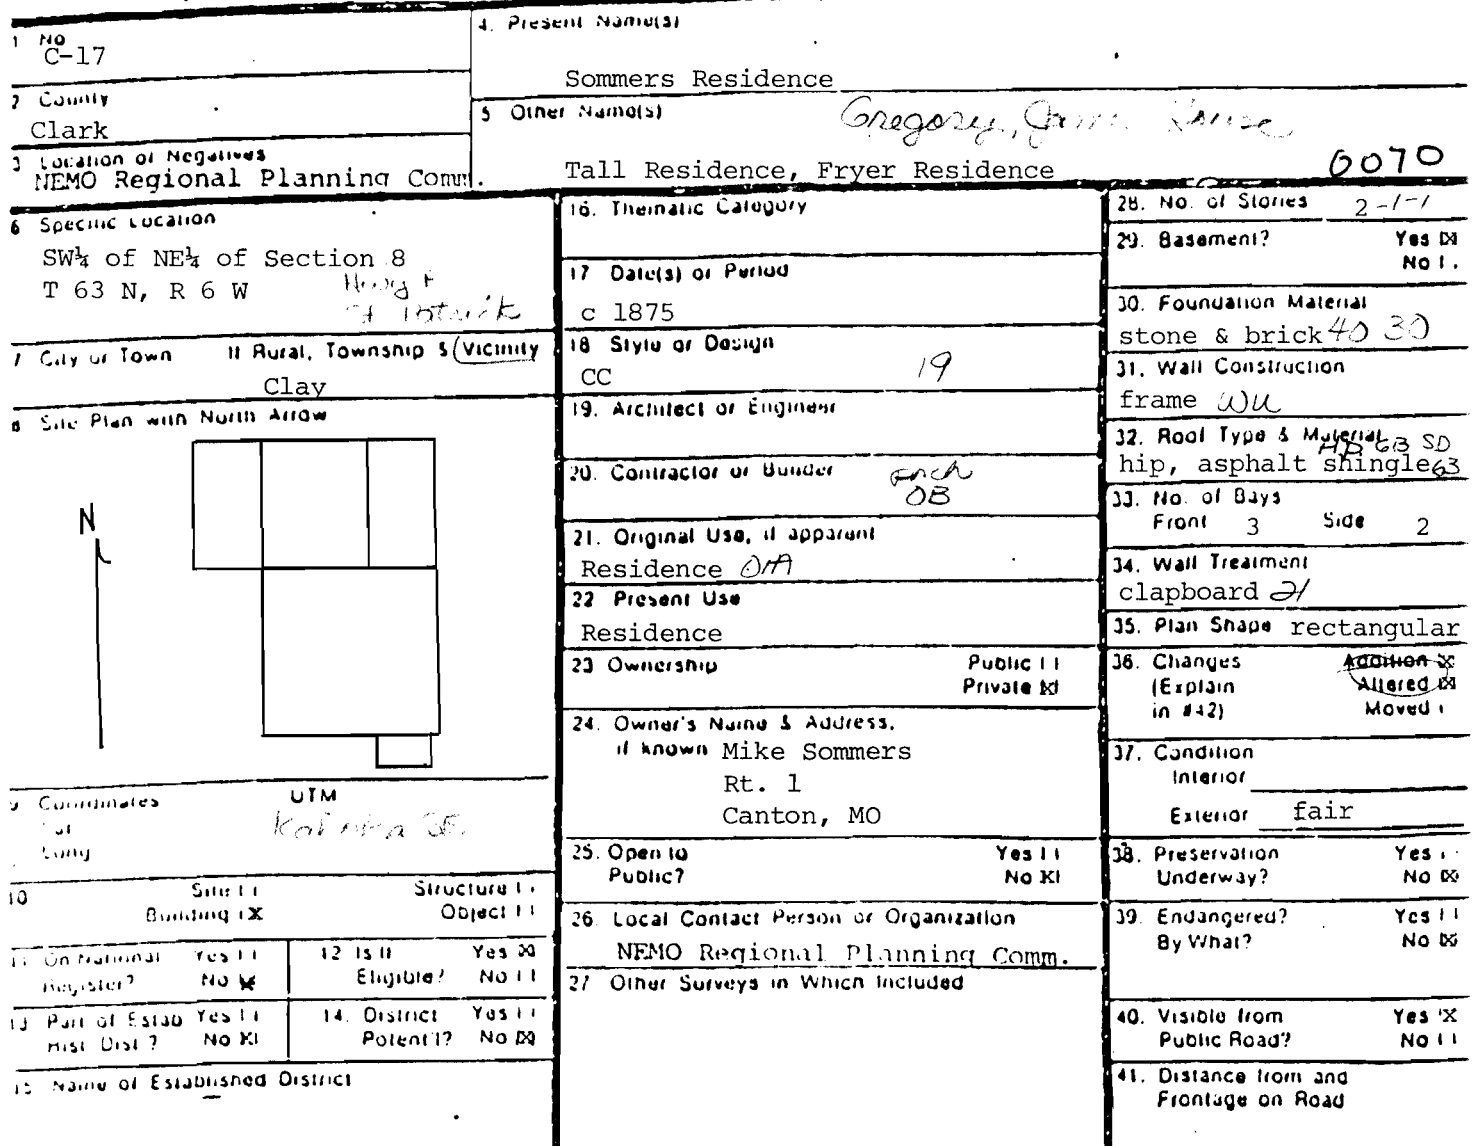 1 No
C-17
2 County
Clark
3 Location of Negatives
NEMO Regional Planning Comm.
4. Present Name(s)
Sommers Residence
5 Other Name(s)
Gregory, House
Tall Residence, Fryer Residence
0070
6 Specific Location
SW¼ of NE¼ of Section 8
T 63 N, R 6 W
St
7 City or Town If Rural, Township & Vicinity
Clay
8 Site Plan with North Arrow
N
9 Coordinates UTM
Lat
Long
10 Site Structure
Building X Object
11 On National Register? Yes No X
12 Is It Eligible? Yes X No
13 Part of Estab Hist. Dist.? Yes No X
14. District Potent'l? Yes No X
15 Name of Established District
16. Thematic Category
17 Date(s) or Period
c 1875
18 Style or Design
CC 19
19. Architect or Engineer
20. Contractor or Builder
OB
21. Original Use, if apparent
Residence
22 Present Use
Residence
23 Ownership Public
Private X
24. Owner's Name & Address,
if known Mike Sommers
Rt. 1
Canton, MO
25. Open to Yes
Public? No X
26. Local Contact Person or Organization
NEMO Regional Planning Comm.
27 Other Surveys in Which Included
28. No. of Stories 2-1-1
29. Basement? Yes X
No
30. Foundation Material
stone & brick 40 30
31. Wall Construction
frame WU
32. Roof Type & Material
HP GB SD
hip, asphalt shingle 63
33. No. of Bays
Front 3 Side 2
34. Wall Treatment
clapboard 21
35. Plan Shape rectangular
36. Changes Addition X
(Explain Altered X
in #42) Moved
37. Condition
Interior
Exterior fair
38. Preservation Yes
Underway? No X
39. Endangered? Yes
By What? No X
40. Visible from Yes X
Public Road? No
41. Distance from and
Frontage on Road